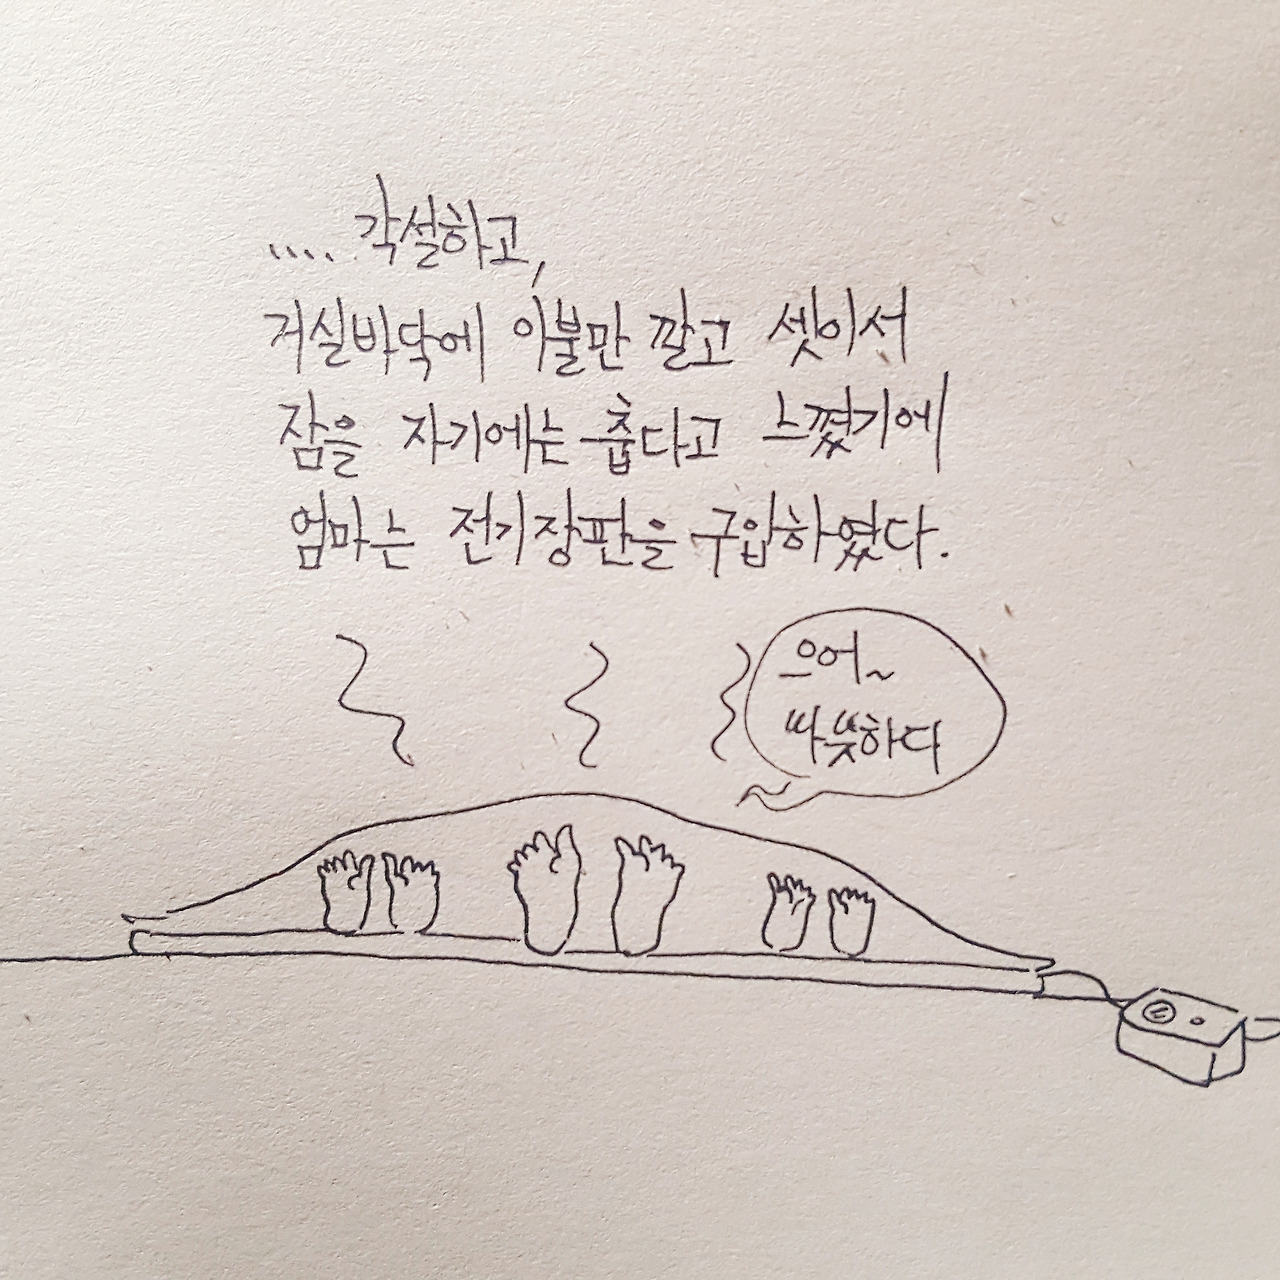 .... 각설하고,
거실바닥에 이불만 깔고 셋이서
잠을 자기에는 춥다고 느꼈기에
엄마는 전기장판을 구입하였다.
으어~
따뜻하다